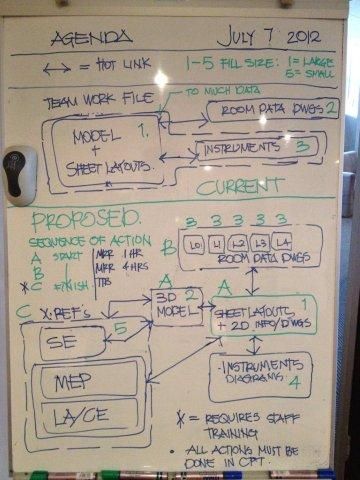 AGENDA JULY 7 2012
↔ = HOT LINK
1-5 FILE SIZE: 1=LARGE
5=SMALL
TEAM WORK FILE
TO MUCH DATA
ROOM DATA DWGS 2
MODEL 1.
+
SHEET LAYOUTS.
INSTRUMENTS 3
CURRENT
PROPOSED.
SEQUENCE OF ACTION
A START
B
* C FINISH.
1 HR
4 HRS
3 3 3 3 3
B
L0 L1 L2 L3 L4
ROOM DATA DWGS
A
3D 2
MODEL
A
SHEET LAYOUTS 1
+ 2D INFO/DWGS
C X-REF'S
SE 5
MEP
LA/CE
INSTRUMENTS
DIAGRAMS 4
* = REQUIRES STAFF
TRAINING
• ALL ACTIONS MUST BE
DONE IN CPT.